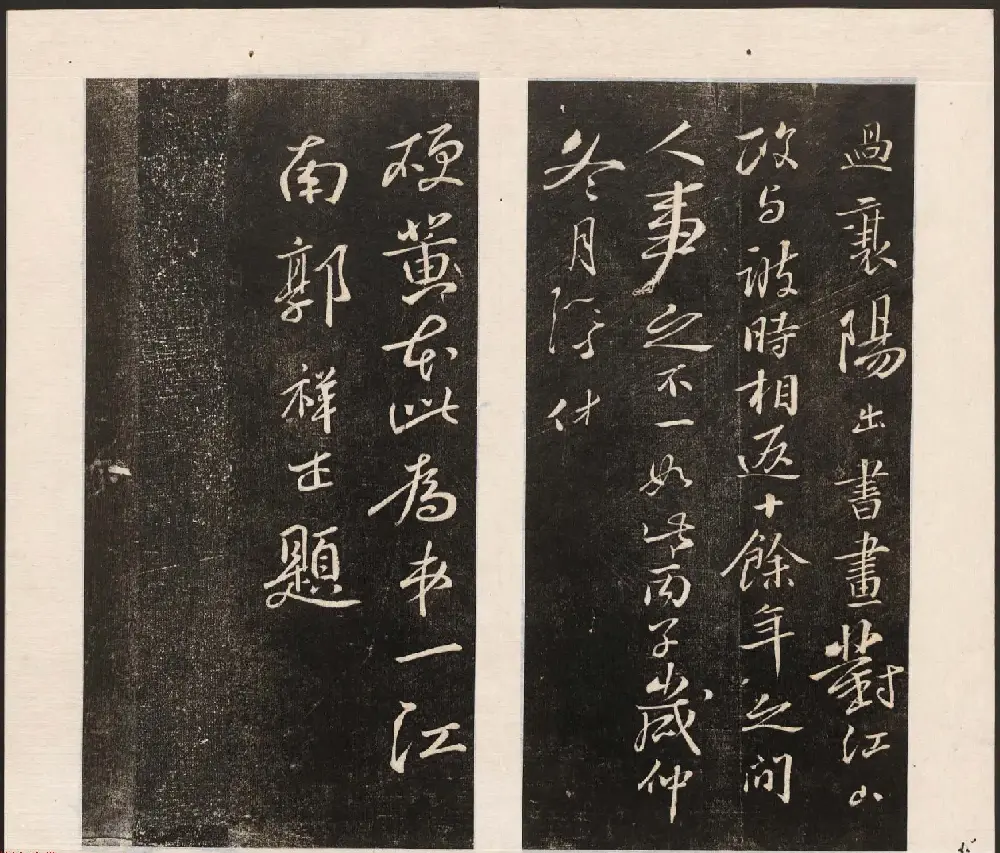 過襄陽出書畫對江山
啟与詖時相返十餘年之間
人事之不一如此丙子歲仲
冬月
硬黄本此為弟一江
南郭祥正題